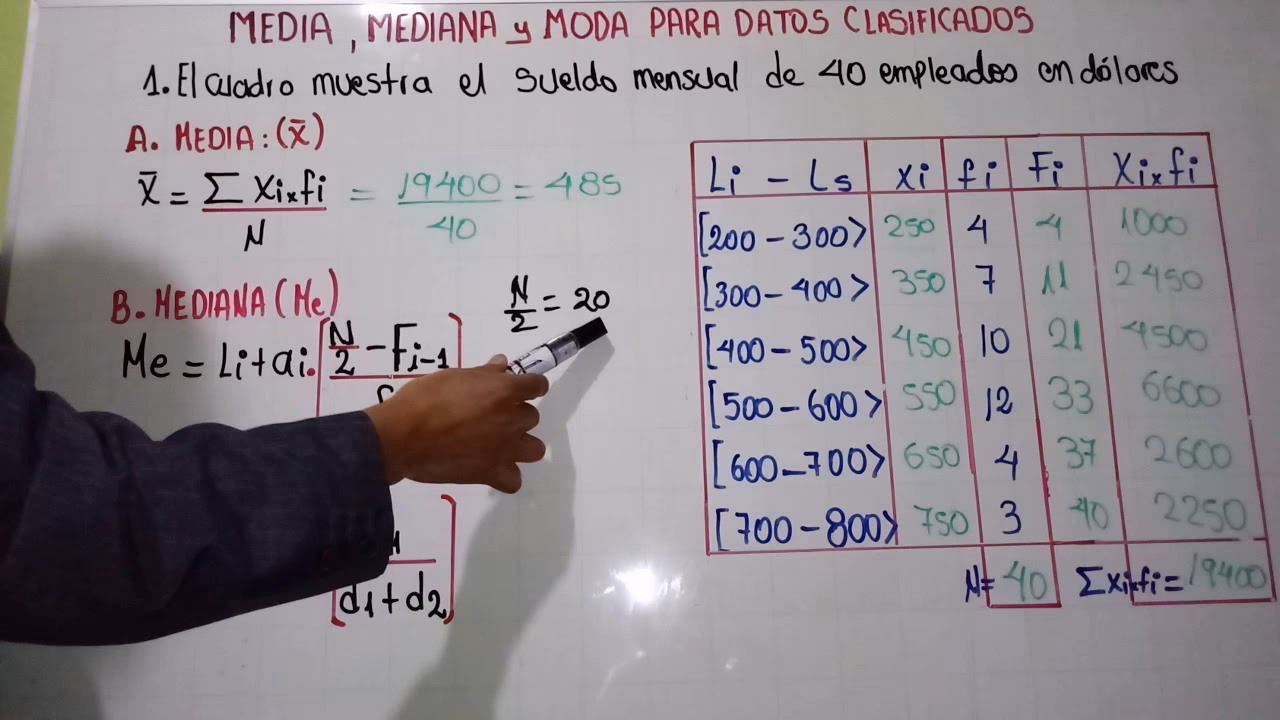 MEDIA, MEDIANA y MODA PARA DATOS CLASIFICADOS
1. El cuadro muestra el sueldo mensual de 40 empleados en dólares
A. MEDIA: (x̄)
x̄ = Σ xi×fi / N = 19400 / 40 = 485
B. MEDIANA (Me)
N/2 = 20
Me = Li + ai. [N/2 - Fi-1
d1 + d2]
Li - Ls xi fi Fi Xi×fi
[200 - 300> 250 4 4 1000
[300 - 400> 350 7 11 2450
[400 - 500> 450 10 21 4500
[500 - 600> 550 12 33 6600
[600 - 700> 650 4 37 2600
[700 - 800> 750 3 40 2250
N= 40 Σxi×fi = 19400